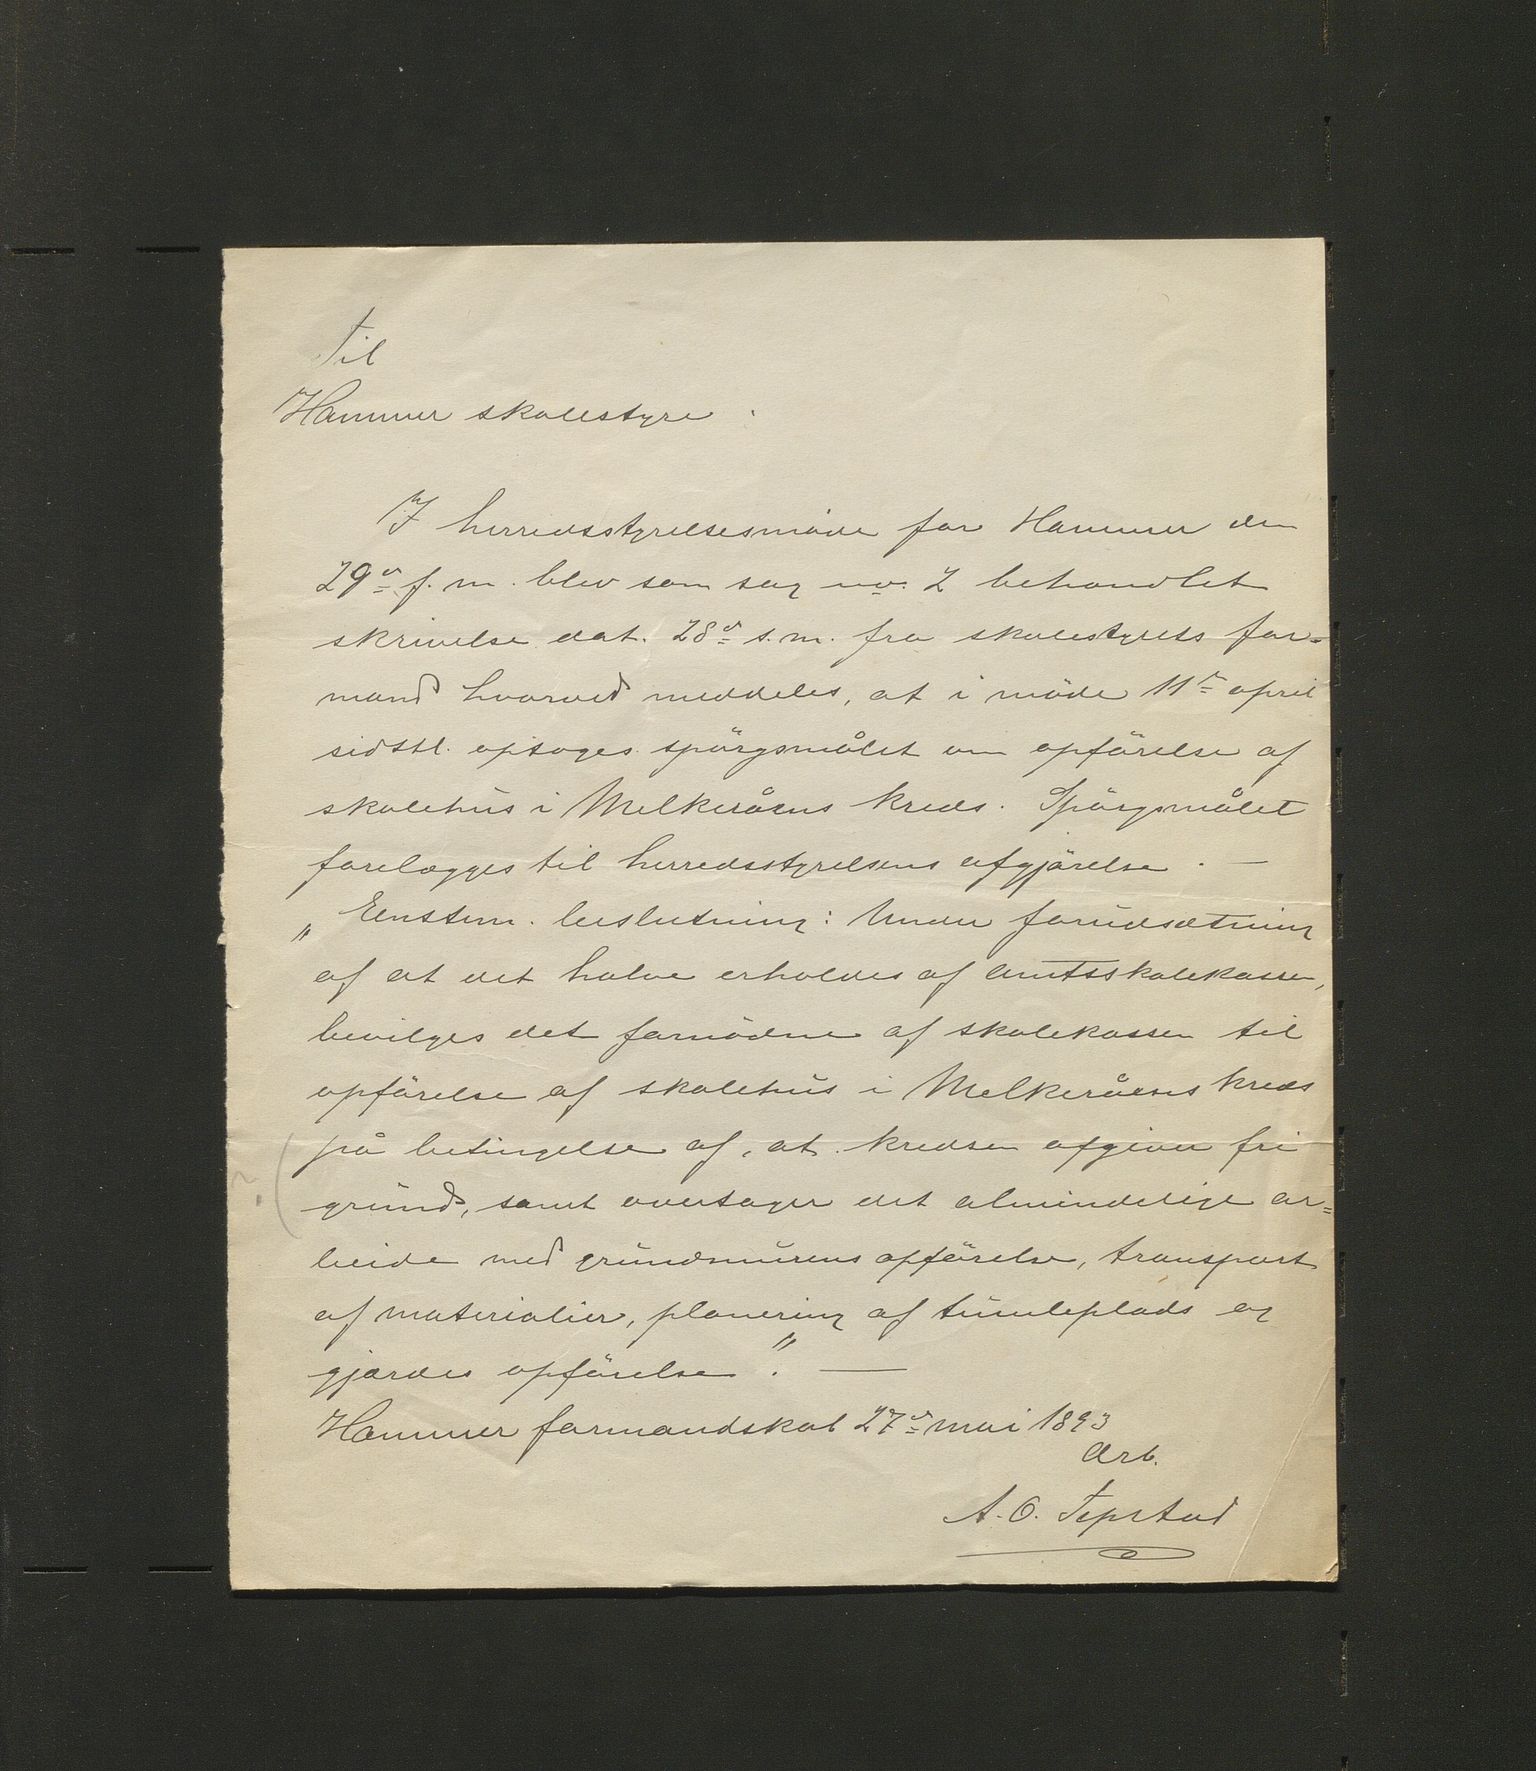 Til
Hammer skolestyre.
I herredsstyrelsesmöde for Hammer den
29de f. m. blev som sag no. 2 behandlet
skrivelse dat. 28de s. m. fra skolestyrets for=
mand hvorved meddeles, at i möde 11te april
sidstl. optoges spörgsmålet om opförelse af
skolehus i Melkeråens kreds. Spörgsmålet
forelægges til herredsstyrelsens afgjörelse. —
„ Enstem. beslutning: Under forudsætning
af at det halve erholdes af amtsskolekassen,
bevilges det fornödne af skolekassen til
opförelse af skolehus i Melkeråens kreds
på betingelse af, at kredsen afgiver fri
grund, samt overtager det almindelige ar=
beide med grundmurens opförelse, transport
af materialier, planering af tumleplads og
gjærdes opförelse ”. —
Hammer formandskab 27de mai 1893
Arb.
A. O. Tepstad